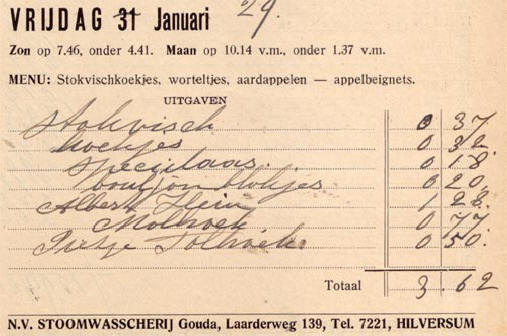 VRIJDAG 31 Januari 29.
Zon op 7.46, onder 4.41. Maan op 10.14 v.m., onder 1.37 v.m.
MENU: Stokvischkoekjes, worteltjes, aardappelen — appelbeignets.
UITGAVEN
Stokvisch 0 37
koekjes 0 32
speculaas. 0 18
bouillon blokjes 0 20
Albert Hein 1 28.
0 77
0 50.
Totaal 3.62
N.V. STOOMWASSCHERIJ Gouda, Laarderweg 139, Tel. 7221, HILVERSUM